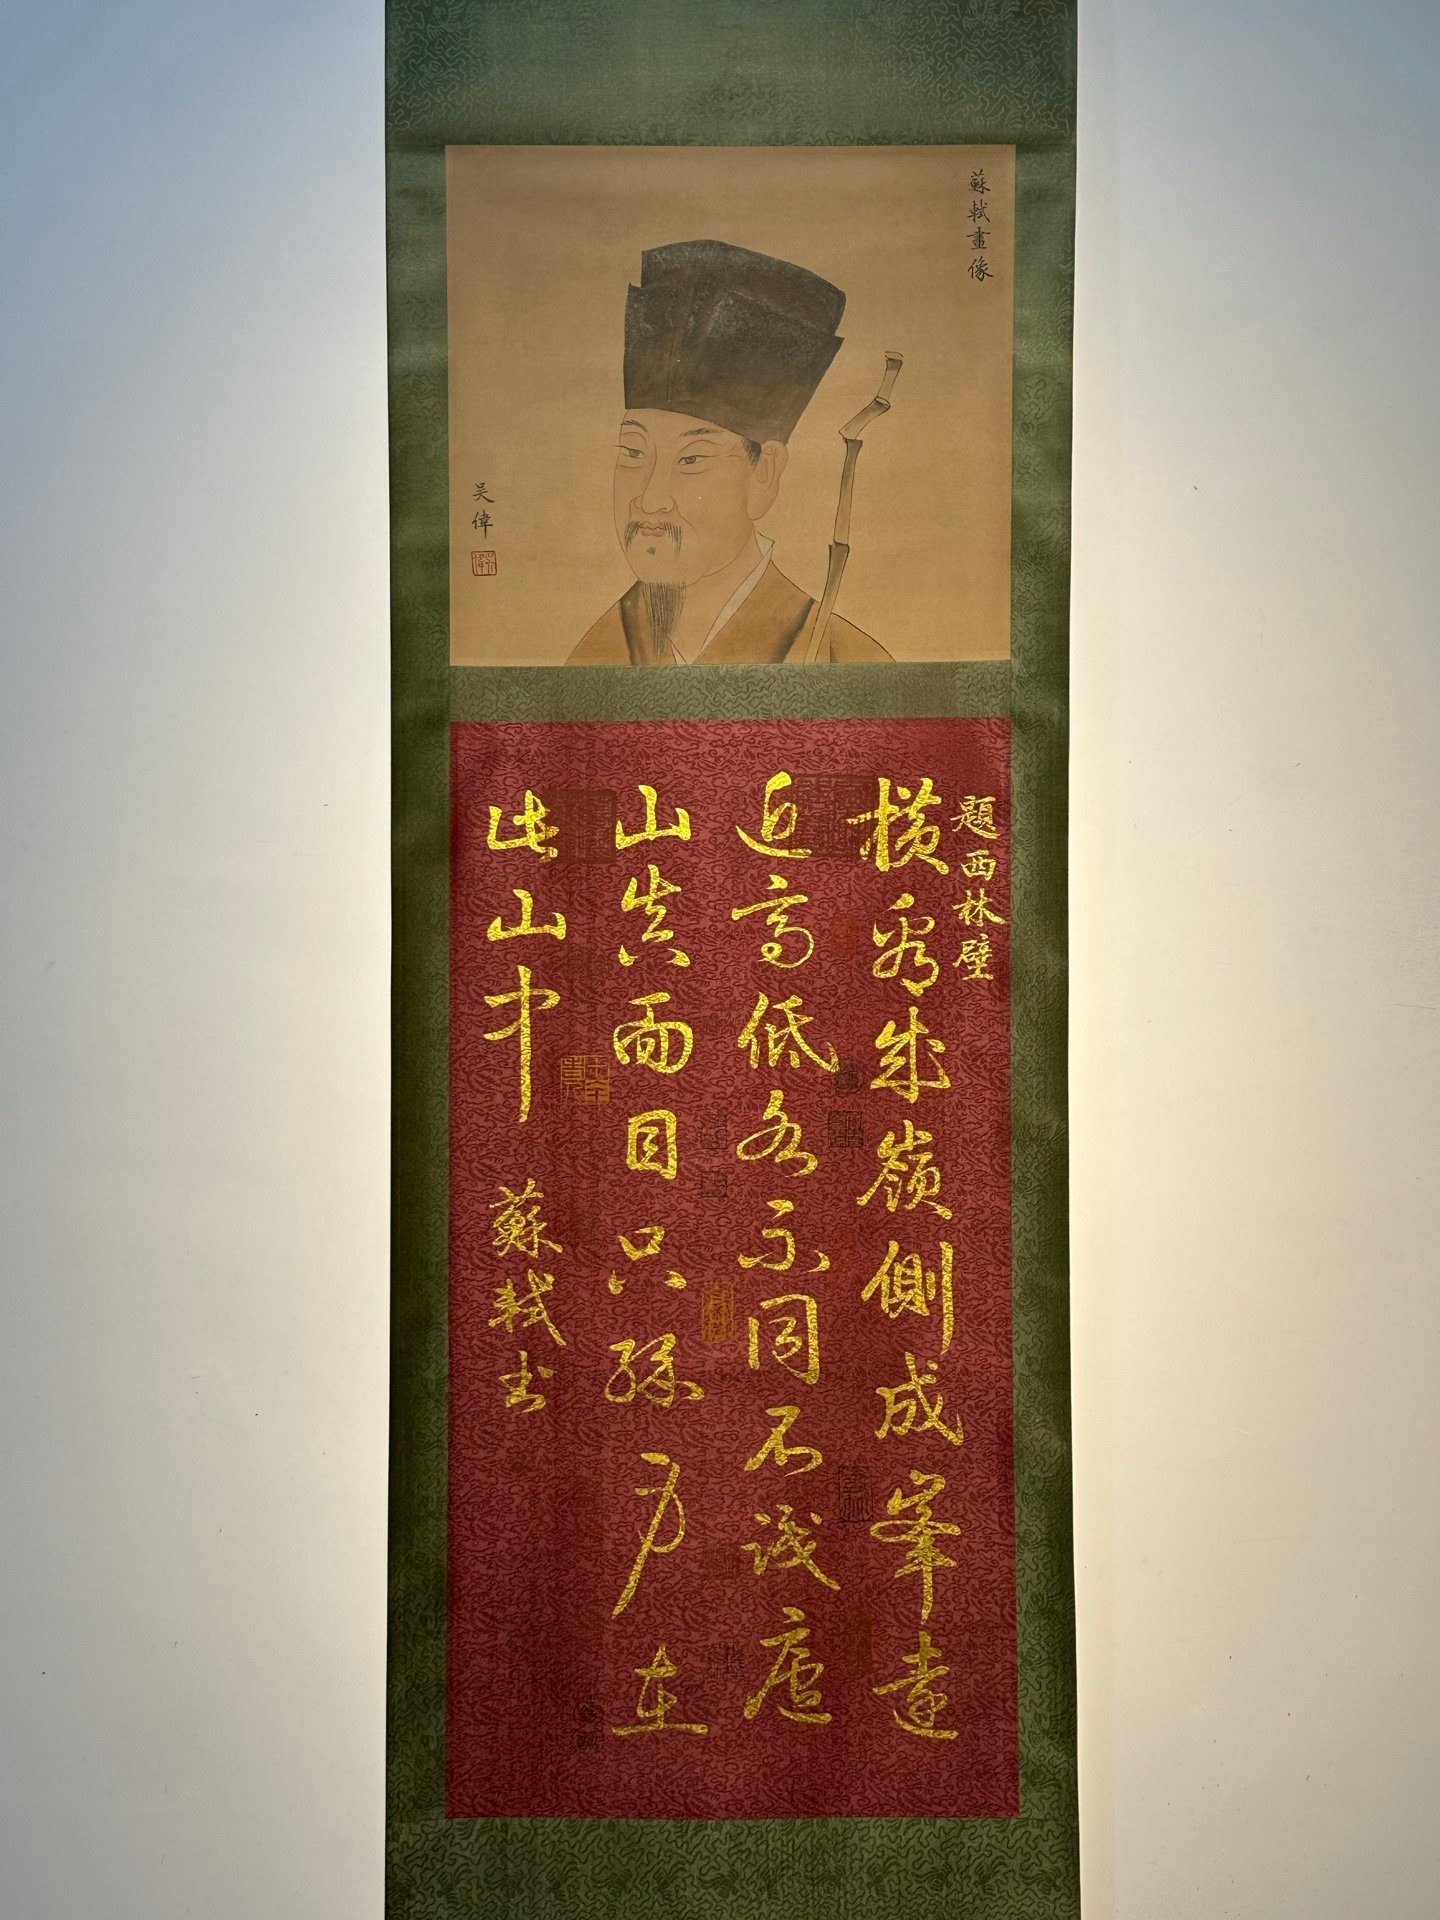 蘇軾畫像
吳偉
題西林壁
橫看成嶺側成峯遠
近高低各不同不識廬
山真面目只緣身在
此山中
蘇軾書